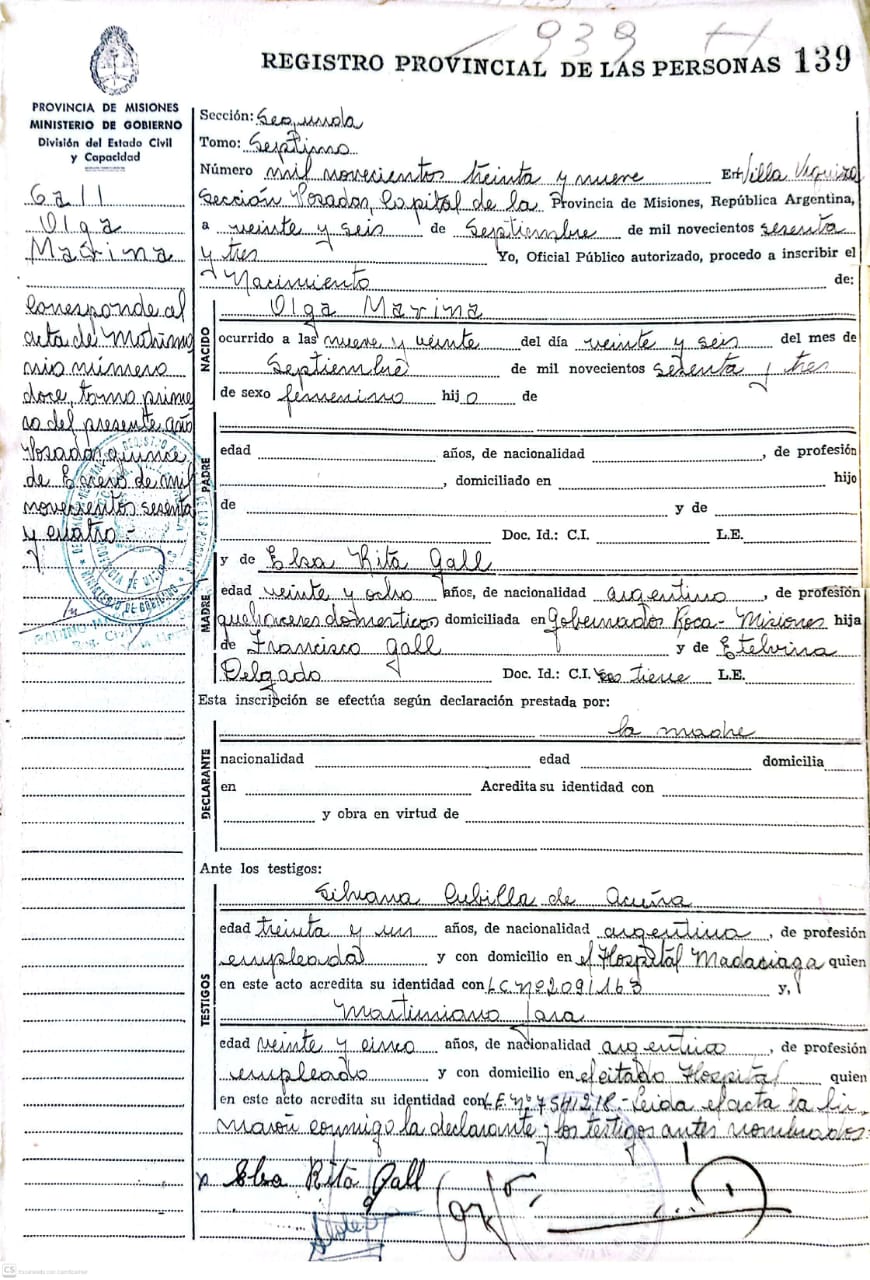 939
REGISTRO PROVINCIAL DE LAS PERSONAS 139
PROVINCIA DE MISIONES
MINISTERIO DE GOBIERNO
División del Estado Civil
y Capacidad
Gall
Olga
Marina
Corresponde al
acta de Matrimo
nio número
doce, tomo prime
ro del presente año
Posadas, quince
de Enero de mil
novecientos sesenta
y cuatro.-
Sección: Segunda
Tomo: Septimo
Número mil novecientos treinta y nueve En Villa Urquiza
Sección Posadas, Capital de la Provincia de Misiones, República Argentina,
a veinte y seis de Septiembre de mil novecientos sesenta
y tres Yo, Oficial Público autorizado, procedo a inscribir el
Nacimiento de:
NACIDO
Olga Marina
ocurrido a las nueve y veinte del día veinte y seis del mes de
Septiembre de mil novecientos sesenta y tres
de sexo femenino hijo de
PADRE
edad años, de nacionalidad , de profesión
, domiciliado en hijo
de y de
Doc. Id.: C.I. L.E.
y de Elsa Rita Gall
MADRE
edad veinte y ocho años, de nacionalidad argentina , de profesión
quehaceres domesticos domiciliada en Gobernador Roca - Misiones hija
de Francisco Gall y de Etelvina
Delgado Doc. Id.: C.I. no tiene L.E.
Esta inscripción se efectúa según declaración prestada por:
la madre
DECLARANTE
nacionalidad edad domicilia
en Acredita su identidad con
y obra en virtud de
Ante los testigos:
TESTIGOS
Silvana Cubilla de Acuña
edad treinta y un años, de nacionalidad argentina , de profesión
empleada y con domicilio en el Hospital Madariaga quien
en este acto acredita su identidad con L C Nº 2091163 y,
Martimiano Jara
edad veinte y cinco años, de nacionalidad argentino , de profesión
empleado y con domicilio en el citado Hospital quien
en este acto acredita su identidad con L.E. Nº - Leida el acta la fir
maron conmigo la declarante y los testigos antes nombrados.
Elsa Rita Gall
CS Escaneado con CamScanner